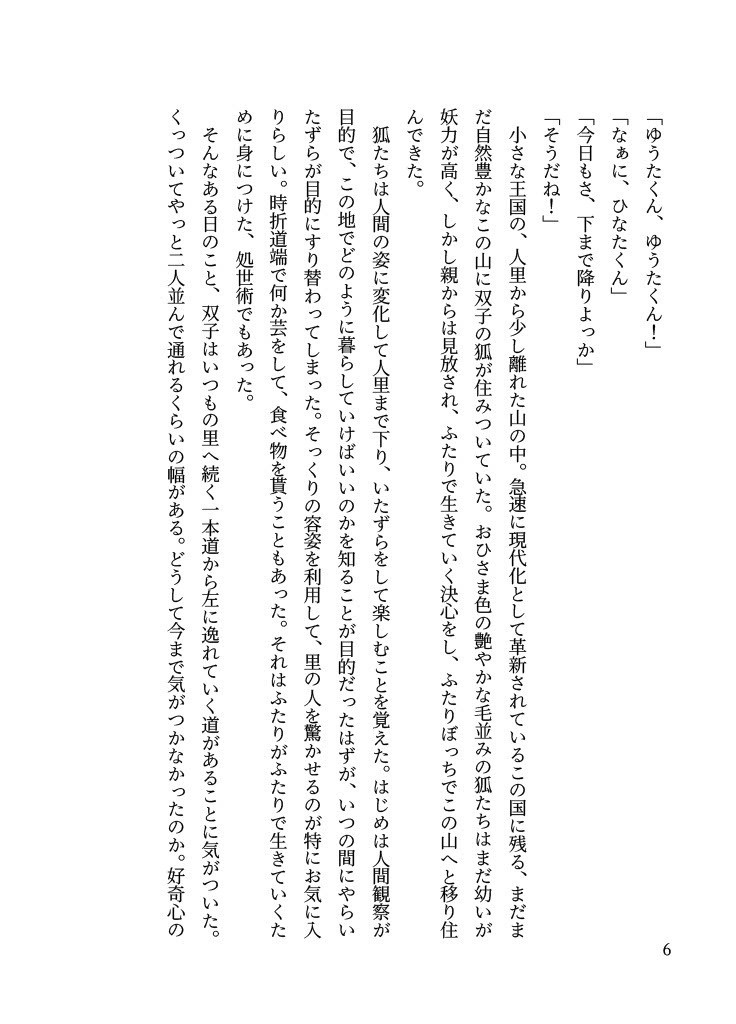 「ゆうたくん、ゆうたくん！」
「なぁに、ひなたくん」
「今日もさ、下まで降りよっか」
「そうだね！」
　小さな王国の、人里から少し離れた山の中。急速に現代化として革新されているこの国に残る、まだま
だ自然豊かなこの山に双子の狐が住みついていた。おひさま色の艶やかな毛並みの狐たちはまだ幼いが
妖力が高く、しかし親からは見放され、ふたりで生きていく決心をし、ふたりぼっちでこの山へと移り住
んできた。
　狐たちは人間の姿に変化して人里まで下り、いたずらをして楽しむことを覚えた。はじめは人間観察が
目的で、この地でどのように暮らしていけばいいのかを知ることが目的だったはずが、いつの間にやらい
たずらが目的にすり替わってしまった。そっくりの容姿を利用して、里の人を驚かせるのが特にお気に入
りらしい。時折道端で何か芸をして、食べ物を貰うこともあった。それはふたりがふたりで生きていくた
めに身につけた、処世術でもあった。
　そんなある日のこと、双子はいつもの里へ続く一本道から左に逸れていく道があることに気がついた。
くっついてやっと二人並んで通れるくらいの幅がある。どうして今まで気がつかなかったのか。好奇心の
6